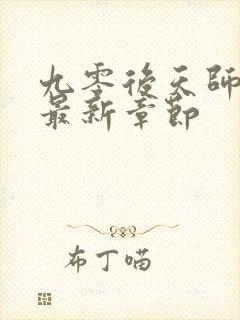 九零後天師
最新章節
布丁喵